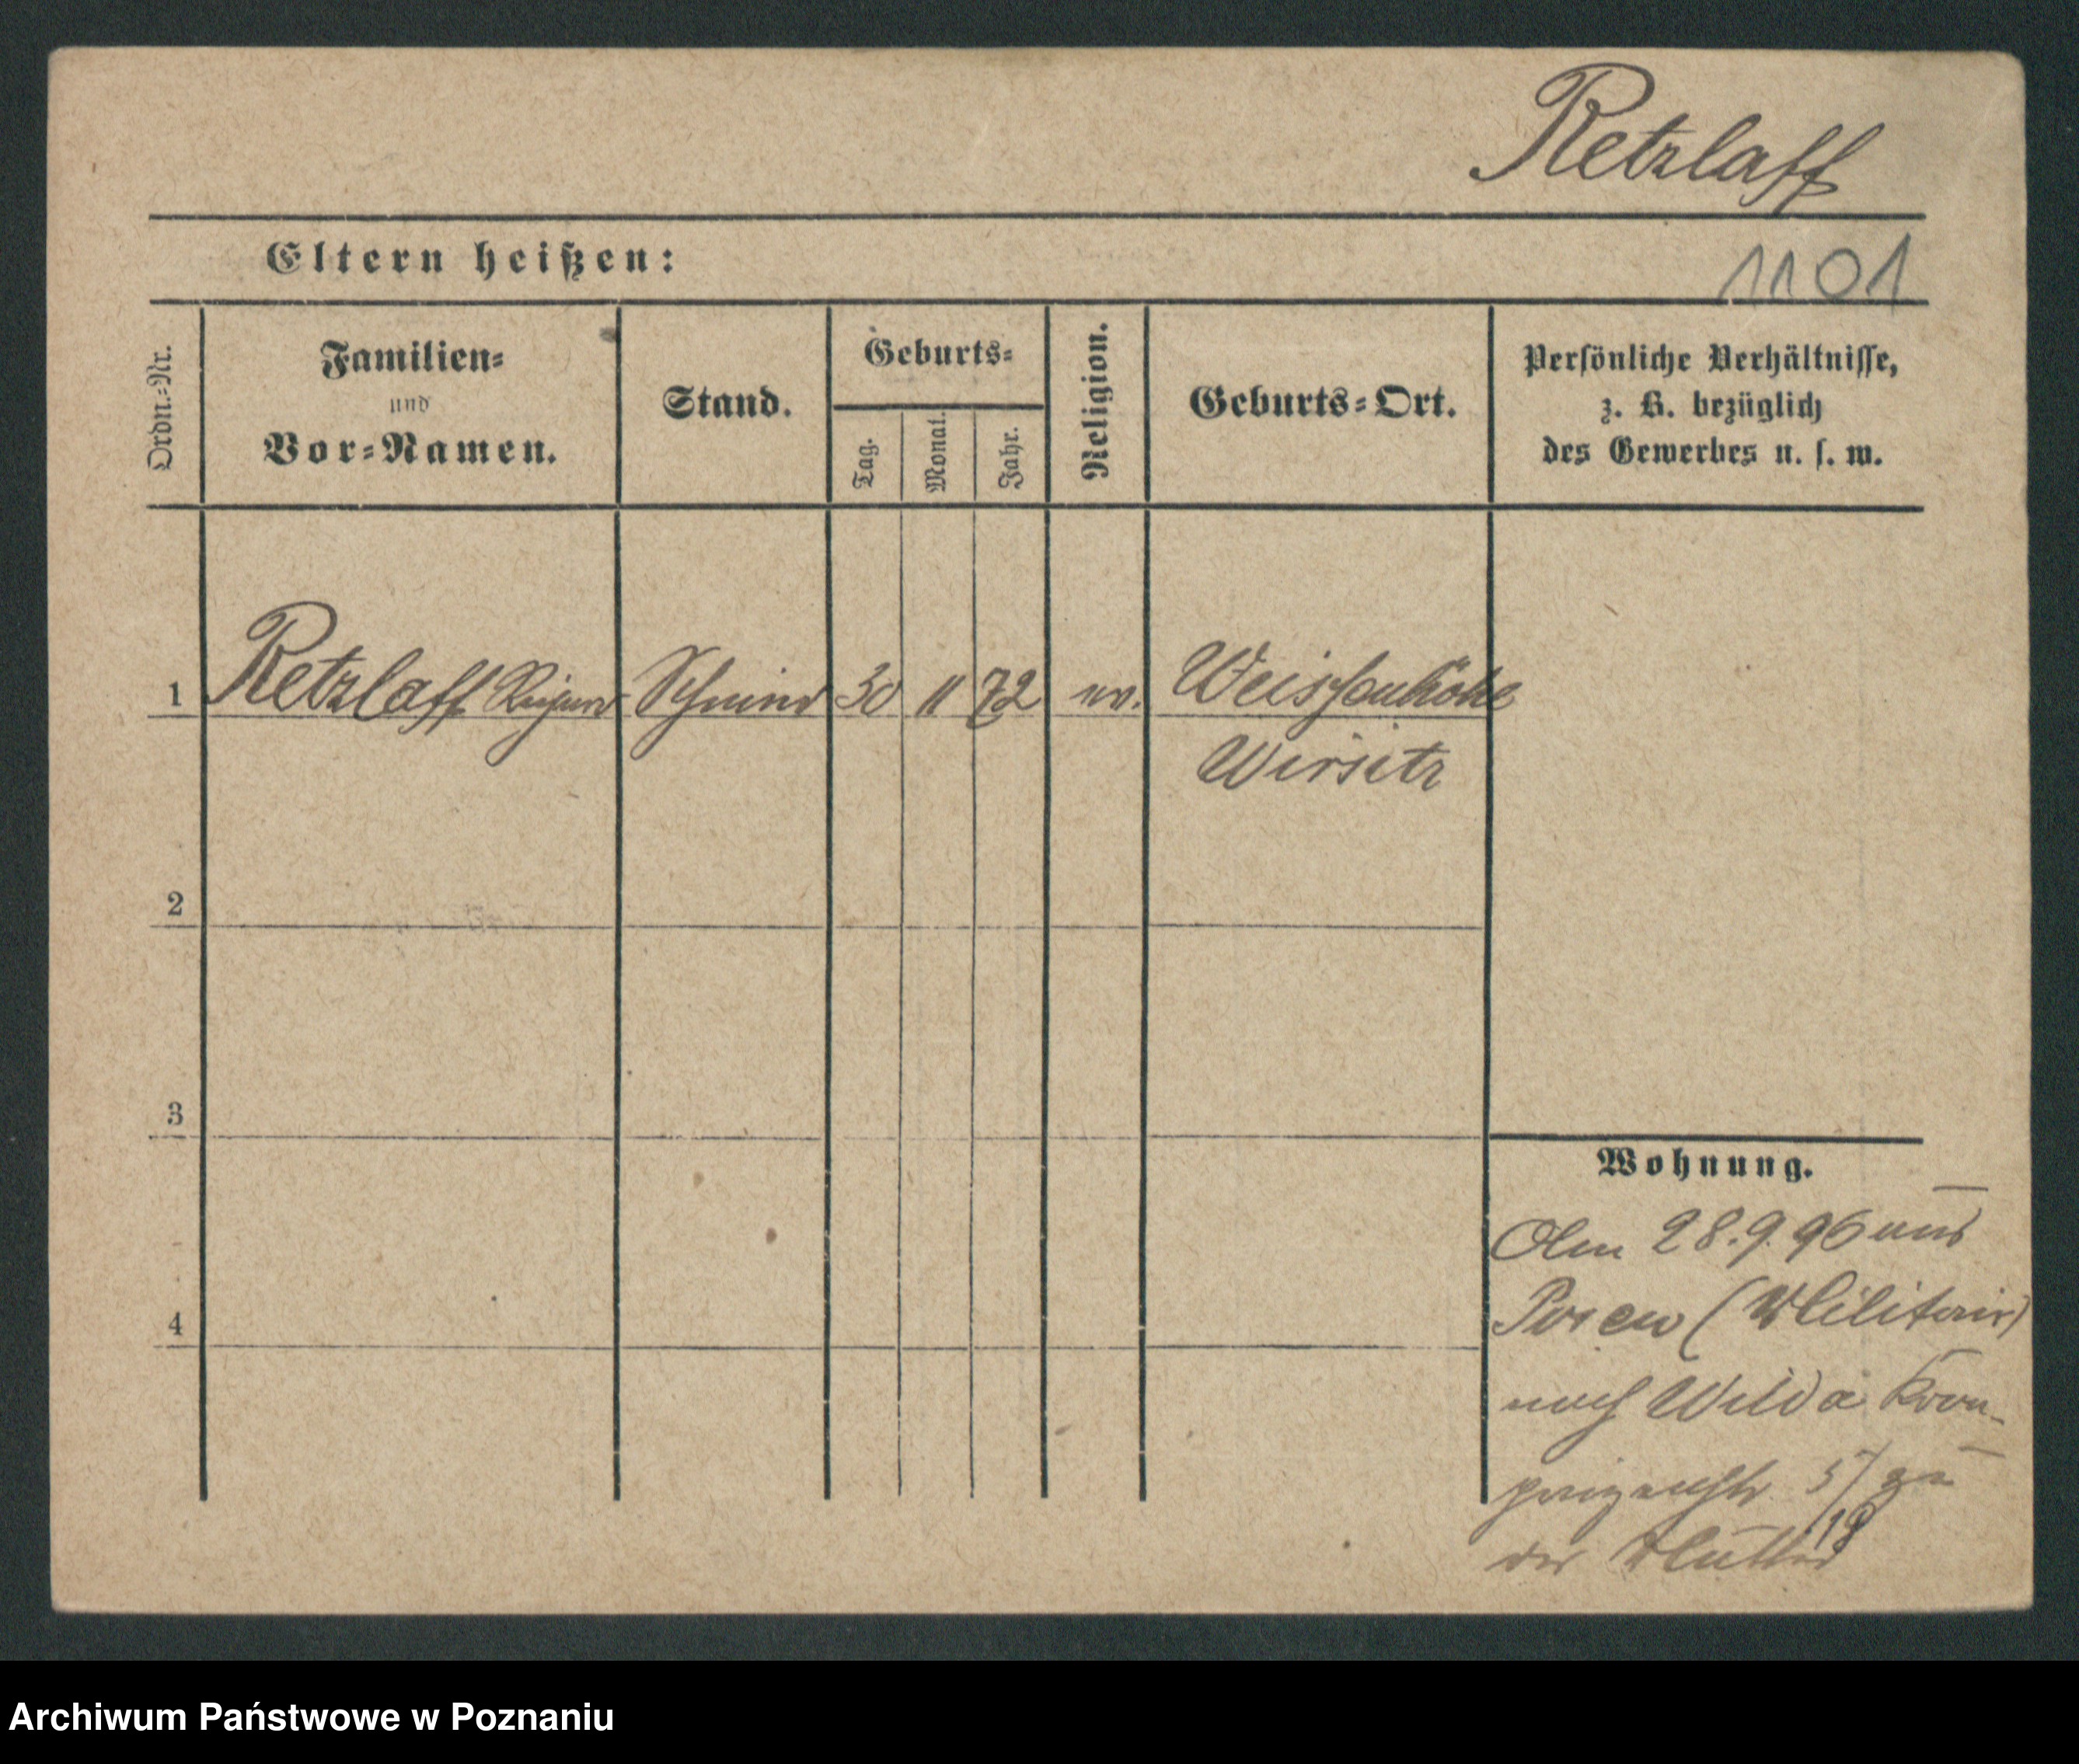 Retzlaff
Eltern heißen:
1101
Ordn.-Nr.
Familien-
und
Vor-Namen.
Stand.
Geburts-
Tag.
Monat.
Jahr.
Religion.
Geburts-Ort.
Persönliche Verhältnisse,
z. B. bezüglich
des Gewerbes u. s. w.
1 Retzlaff Schmied 30 11 72 ev. Weissenhöhe
Wirsitz
2
3
4
Wohnung.
Am 28.9.96 aus
Posen (Militair)
nach Wilda Kron-
prinzenstr. 5/ zu
der Mutter
Archiwum Państwowe w Poznaniu